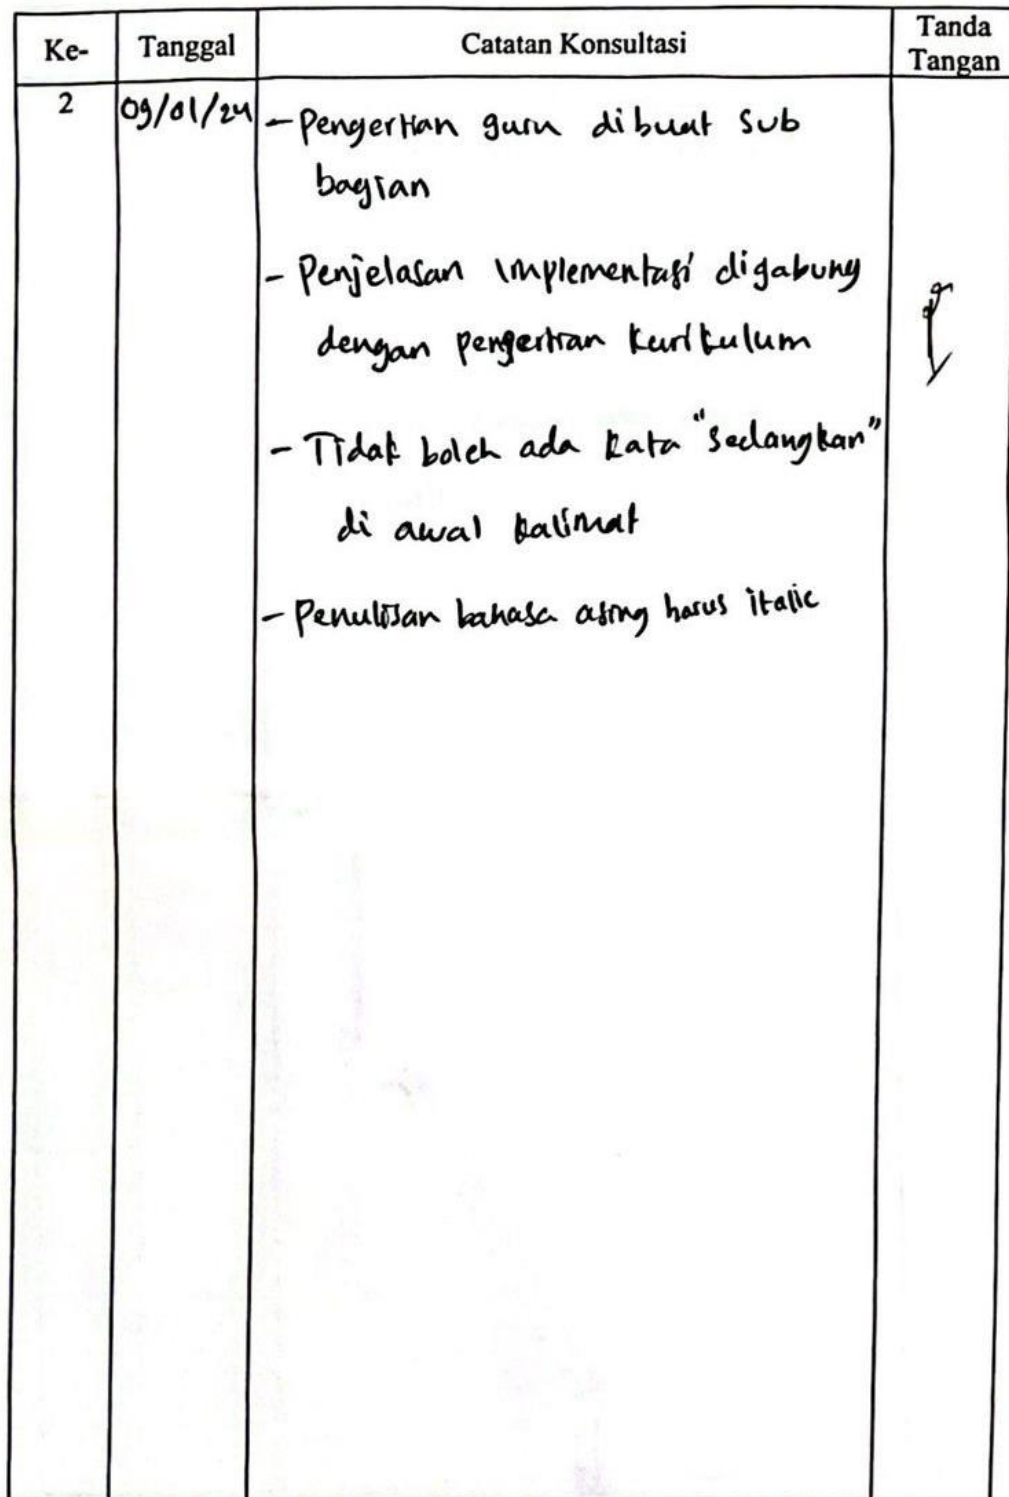 Ke- Tanggal Catatan Konsultasi Tanda Tangan
2 09/01/24 - Pengertian guru dibuat Sub
bagian
- Penjelasan implementasi digabung
dengan pengertian kurikulum
- Tidak boleh ada kata "sedangkan"
di awal kalimat
- Penulisan bahasa asing harus italic